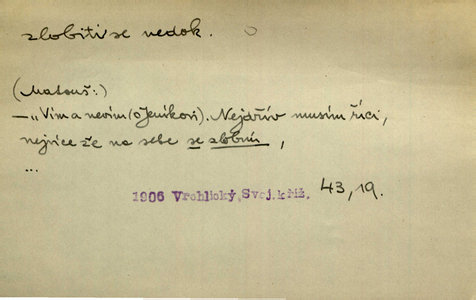 zlobiti se nedok.
(Matouš:)
– „Vím a nevím (o Jeníkovi). Nejdřív musím říci,
nejvíce že na sebe se zlobím,
...
1906 Vrchlický, Svoj. k říž. 43, 19.